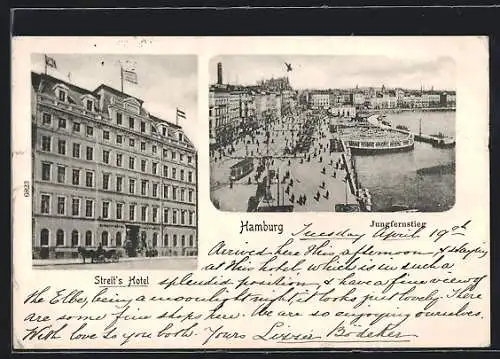 Hamburg
Jungfernstieg
6923
Streit's Hotel
Tuesday April 19th
Arrived here this afternoon, & staying
at this hotel, which is in such a
splendid position, & have a fine view of
the Elbe, being a moonlight night it looks just lovely. There
are some fine shops here. We are so enjoying ourselves.
With love to you both. Yours Lizzie Bödeker